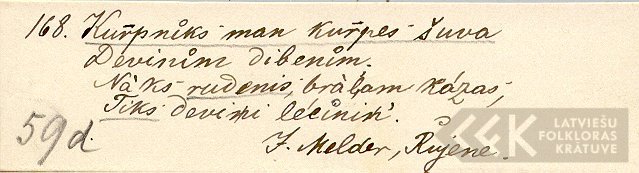 168. Kur̃pniks man kur̃pes šuva
Deviņi̊m dibeni̊m.
Nàks rudenis, brāļam kāzas,
Tiks deviņi lēci̊niņ'.
59d.
J. Melder, Rujene.
LATVIEŠU
FOLKLORAS
KRĀTUVE